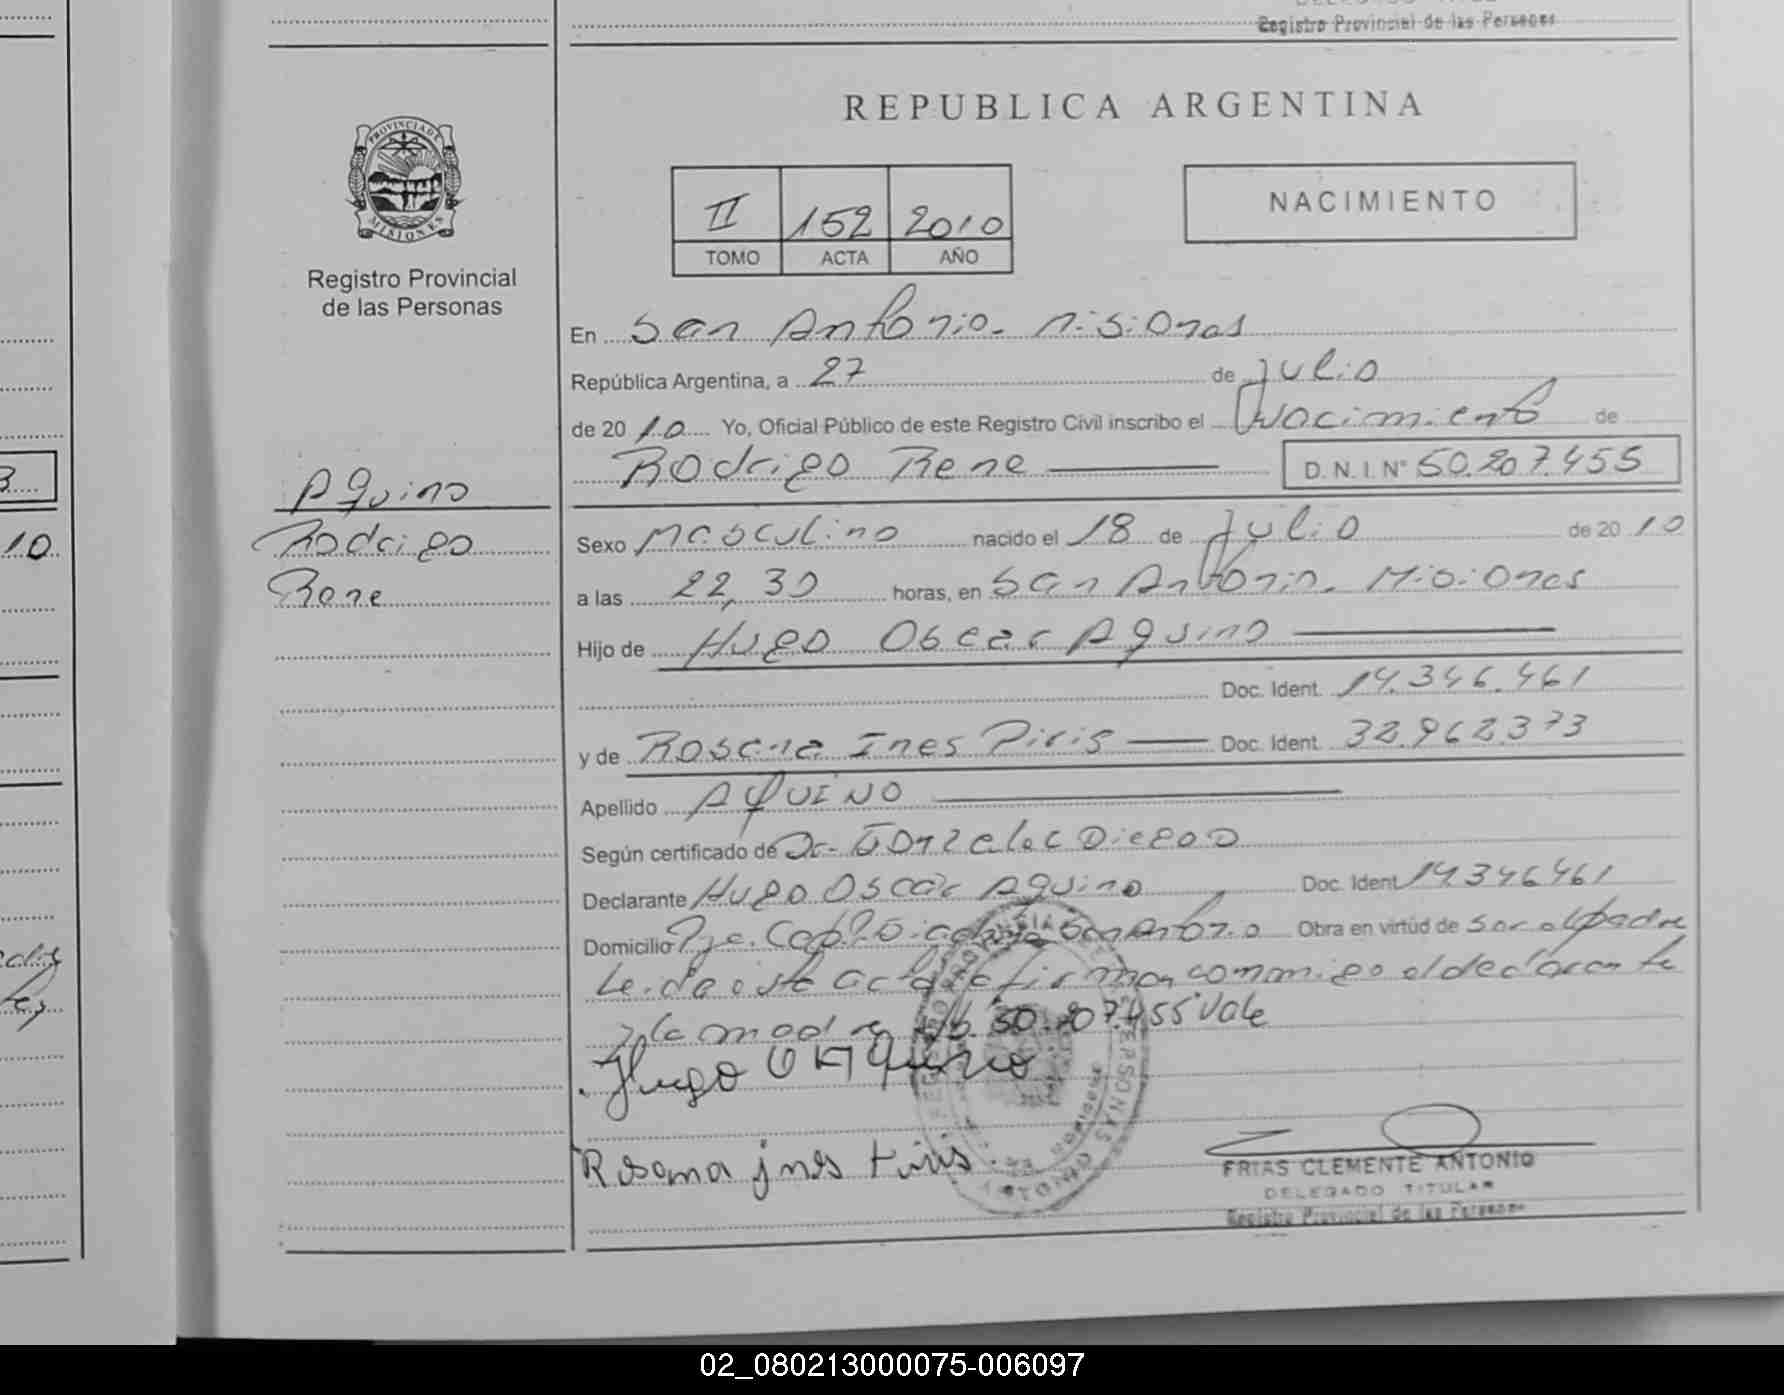 Registro Provincial de las Personas
REPUBLICA ARGENTINA
PROVINCIA DE
MISIONES
Registro Provincial
de las Personas
II 152 2010
TOMO ACTA AÑO
NACIMIENTO
En San Antonio - Misiones
República Argentina, a 27 de Julio
de 20 10 Yo, Oficial Público de este Registro Civil inscribo el Nacimiento de
Rodrigo Rene D.N.I. Nº 50.207.455
Aquino
Rodrigo
Rene
Sexo Masculino nacido el 18 de Julio de 20 10
a las 22,30 horas, en San Antonio - Misiones
Hijo de Hugo Oscar Aquino
Doc. Ident. 14.346.461
y de Rosana Ines Piris Doc. Ident. 32.962.373
Apellido AQUINO
Según certificado de Dr. Gonzalez Diego O
Declarante Hugo Oscar Aquino Doc. Ident 14346461
Domicilio San Antonio Obra en virtud de ser el padre
Leida este acta firman conmigo el declarante
y la madre 50.207.455 Vale
Hugo O Aquino
Rosana ines Piris
FRIAS CLEMENTE ANTONIO
DELEGADO TITULAR
Registro Provincial de las Personas
10
02_080213000075-006097